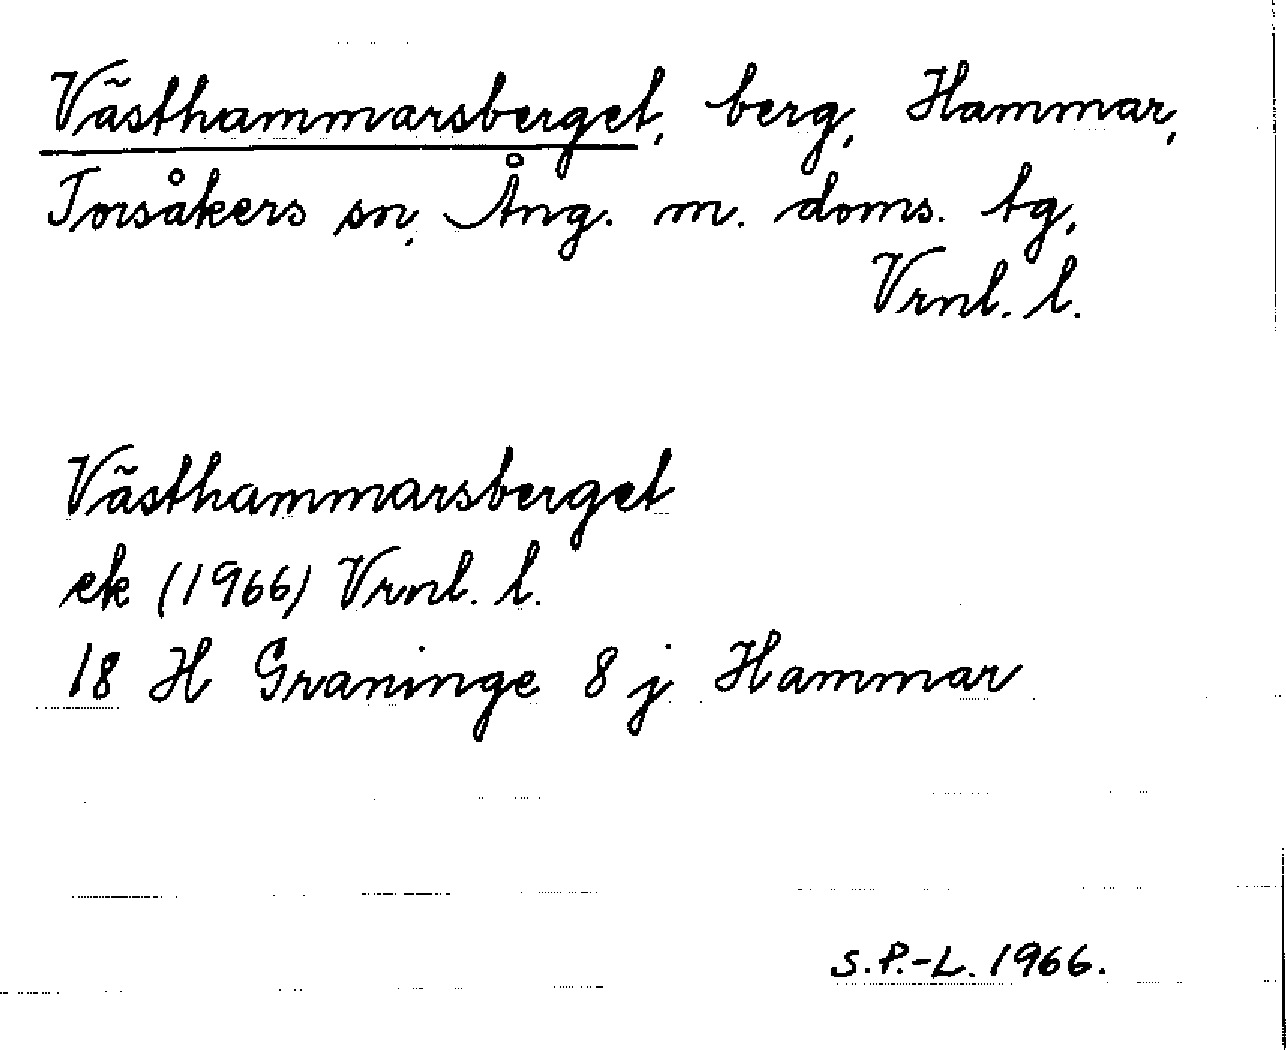 Västhammarsberget, berg, Hammar,
Torsåkers sn, Ång. m. doms. tg,
Vrnl. l.
Västhammarsberget
ek (1966) Vrnl. l.
18 H Graninge 8 j Hammar
S.P.-L. 1966.